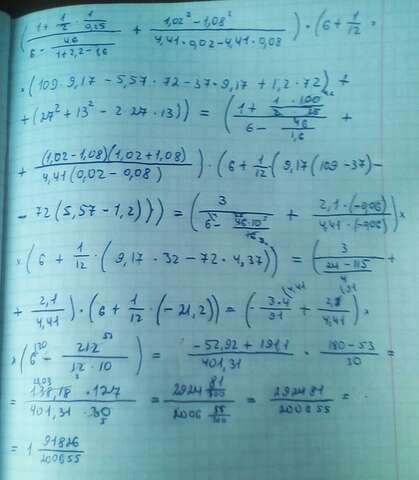 ( (1 + 1/2 · 1/0,25) / (6 - 46/(1+2,2-1,6)) + (1,02² - 1,08²) / (4,41 · 0,02 - 4,41 · 0,08) ) · (6 + 1/12 ×
× (109 · 9,17 - 5,57 · 72 - 37 · 9,17 + 1,2 · 72) +
+ (27² + 13² - 2 · 27 · 13)) = ( (1 + 1/2 · 100/25) / (6 - 46/1,6) +
+ (1,02 - 1,08)(1,02 + 1,08) / 4,41(0,02 - 0,08) ) · (6 + 1/12 (9,17(109 - 37) -
- 72(5,57 - 1,2))) = ( 3 / (6 - 46·10/16) + 2,1 · (-0,06) / 4,41 · (-0,06) ) ×
× (6 + 1/12 · (9,17 · 32 - 72 · 4,37)) = ( 3 / ((24 - 115)/4) +
+ 2,1/4,41 ) · (6 + 1/12 · (-21,2)) = ( - 3·4/91 + 2,1/4,41 ) ×
× (6 - 212/12·10) = (-52,92 + 191,1)/401,31 · (180 - 53)/30 =
= 138,18 · 127 / 401,31 · 30 = 2924 81/100 / 2006 55/100 = 292481/200655 =
= 1 91826/200655